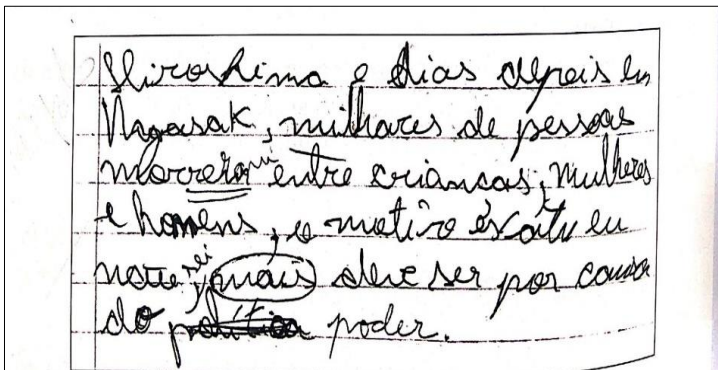 Hiroshima e dias depois em
Nagasak, milhares de pessoas
morreram entre criancas, mulheres
e homens, o motivo exato eu
não sei, mais deve ser por causa
do politica poder.